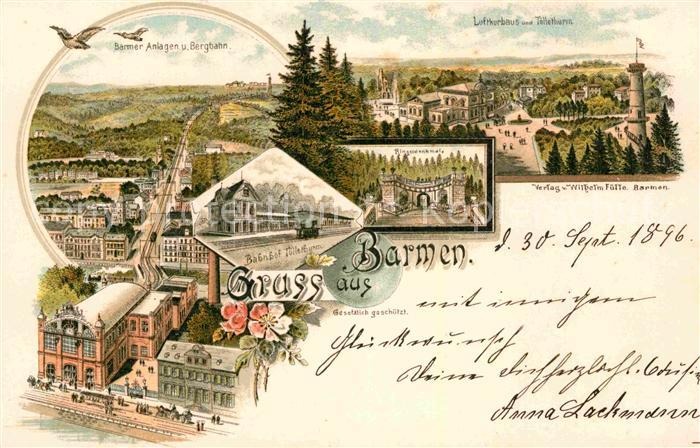 Barmer Anlagen u. Bergbahn.
Luftkurhaus und Tölleturm.
Ringeldenkmal.
Verlag v. Wilhelm Fülle. Barmen.
Bahnhof Tölleturm.
Gruss aus Barmen.
Gesetzlich geschützt.
d. 30. Sept. 1896.
mit innigem
Glückwunsch
Deine Dich herzl.
Anna Lackmann